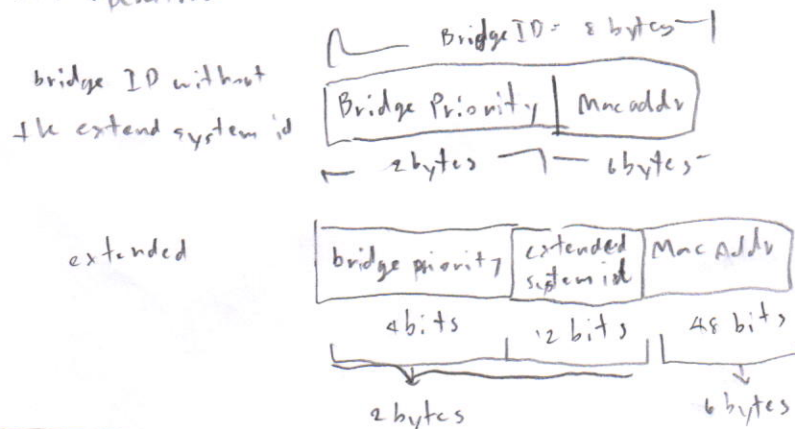 Bridge ID = 8 bytes
bridge ID without
the extend system id
Bridge Priority Mac addr
2 bytes 6 bytes
extended
bridge priority extended system id Mac Addr
4 bits 12 bits 48 bits
2 bytes 6 bytes